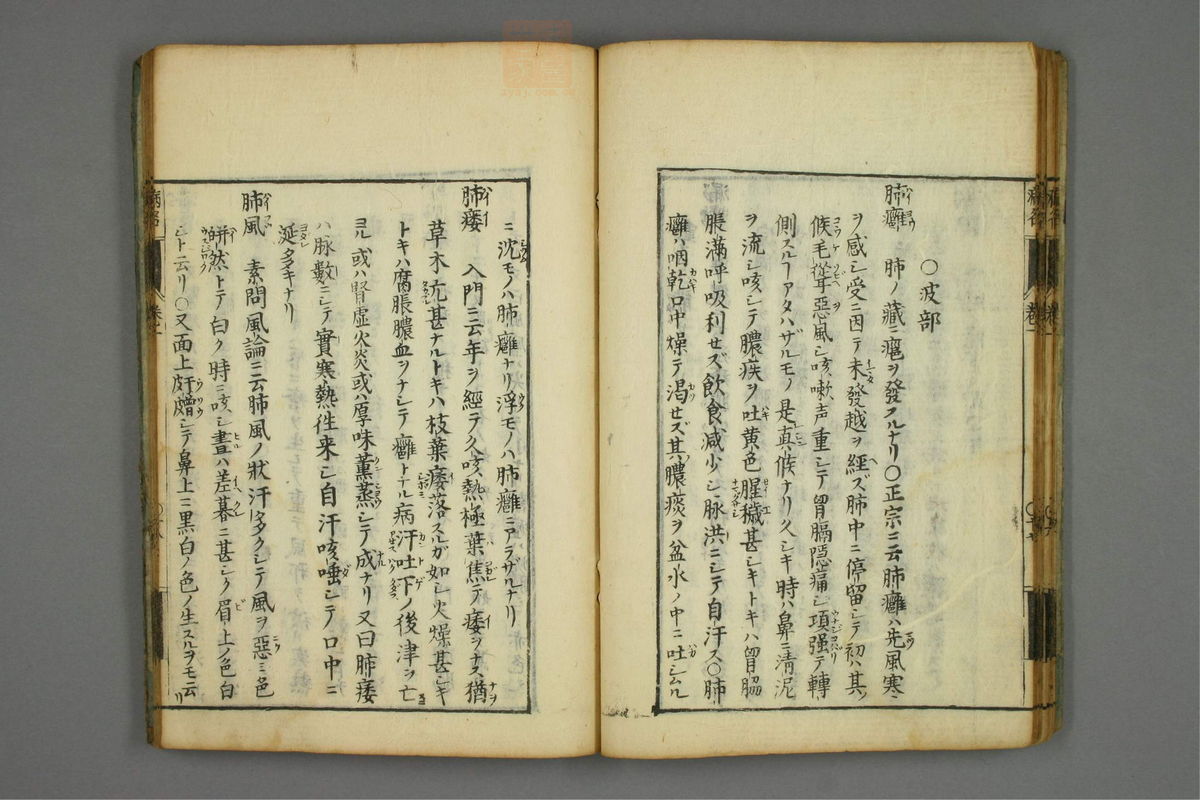 ○波部
肺癰 肺ノ藏ニ癰ヲ發スルナリ○正宗ニ云肺癰ハ先風寒
ヲ感シ受ニ因テ未發越ヲ經ズ肺中ニ停留シテ初ハ其
候毛聳惡風シ咳嗽声重シテ胷膈隠痛シ項强テ轉
側スルヿアタハザルモノ是真候ナリ久シキ時ハ鼻ニ清泥
ヲ流シ咳シテ膿痰ヲ吐黄色腥穢甚シキトキハ胷脇
脹滿呼吸利せズ飲食減少シ脉洪ニシテ自汗ス○肺
癰ハ咽乾口中燥テ渇せズ其膿痰ヲ盆水ノ中ニ吐シムル
ニ沈モノハ肺癰ナリ浮モノハ肺癰ニアラザルナリ
肺痿 入門ニ云年ヲ經テ久咳熱極葉焦テ痿ヲナス猶
草木亢甚ナルトキハ枝葉痿落スルガ如シ火燥甚シキ
トキハ腐脹膿血ヲナシテ癰トナル病汗吐下ノ後津ヲ亡
ヨル或ハ腎虚火炎或ハ厚味薫蒸シテ成ナリ又曰肺痿
ハ脉數ニシテ實寒熱徃来シ自汗咳唾シテ口中ニ
涎タマキナリ
肺風 素問風論ニ云肺風ノ狀汗多クシテ風ヲ惡ミ色
皏然トテ白ク時ニ咳シ晝ハ差暮ニ甚シク眉上ノ色白
シト云リ○又面上皯䵳シテ鼻上ニ黒白ノ色ノ生スルヲモ云
リ